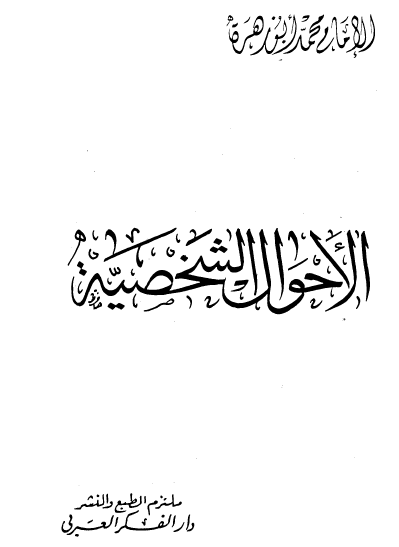 الإمام محمد أبو زهرة
الأحوال الشخصية
ملتزم الطبع والنشر
دار الفكر العربي